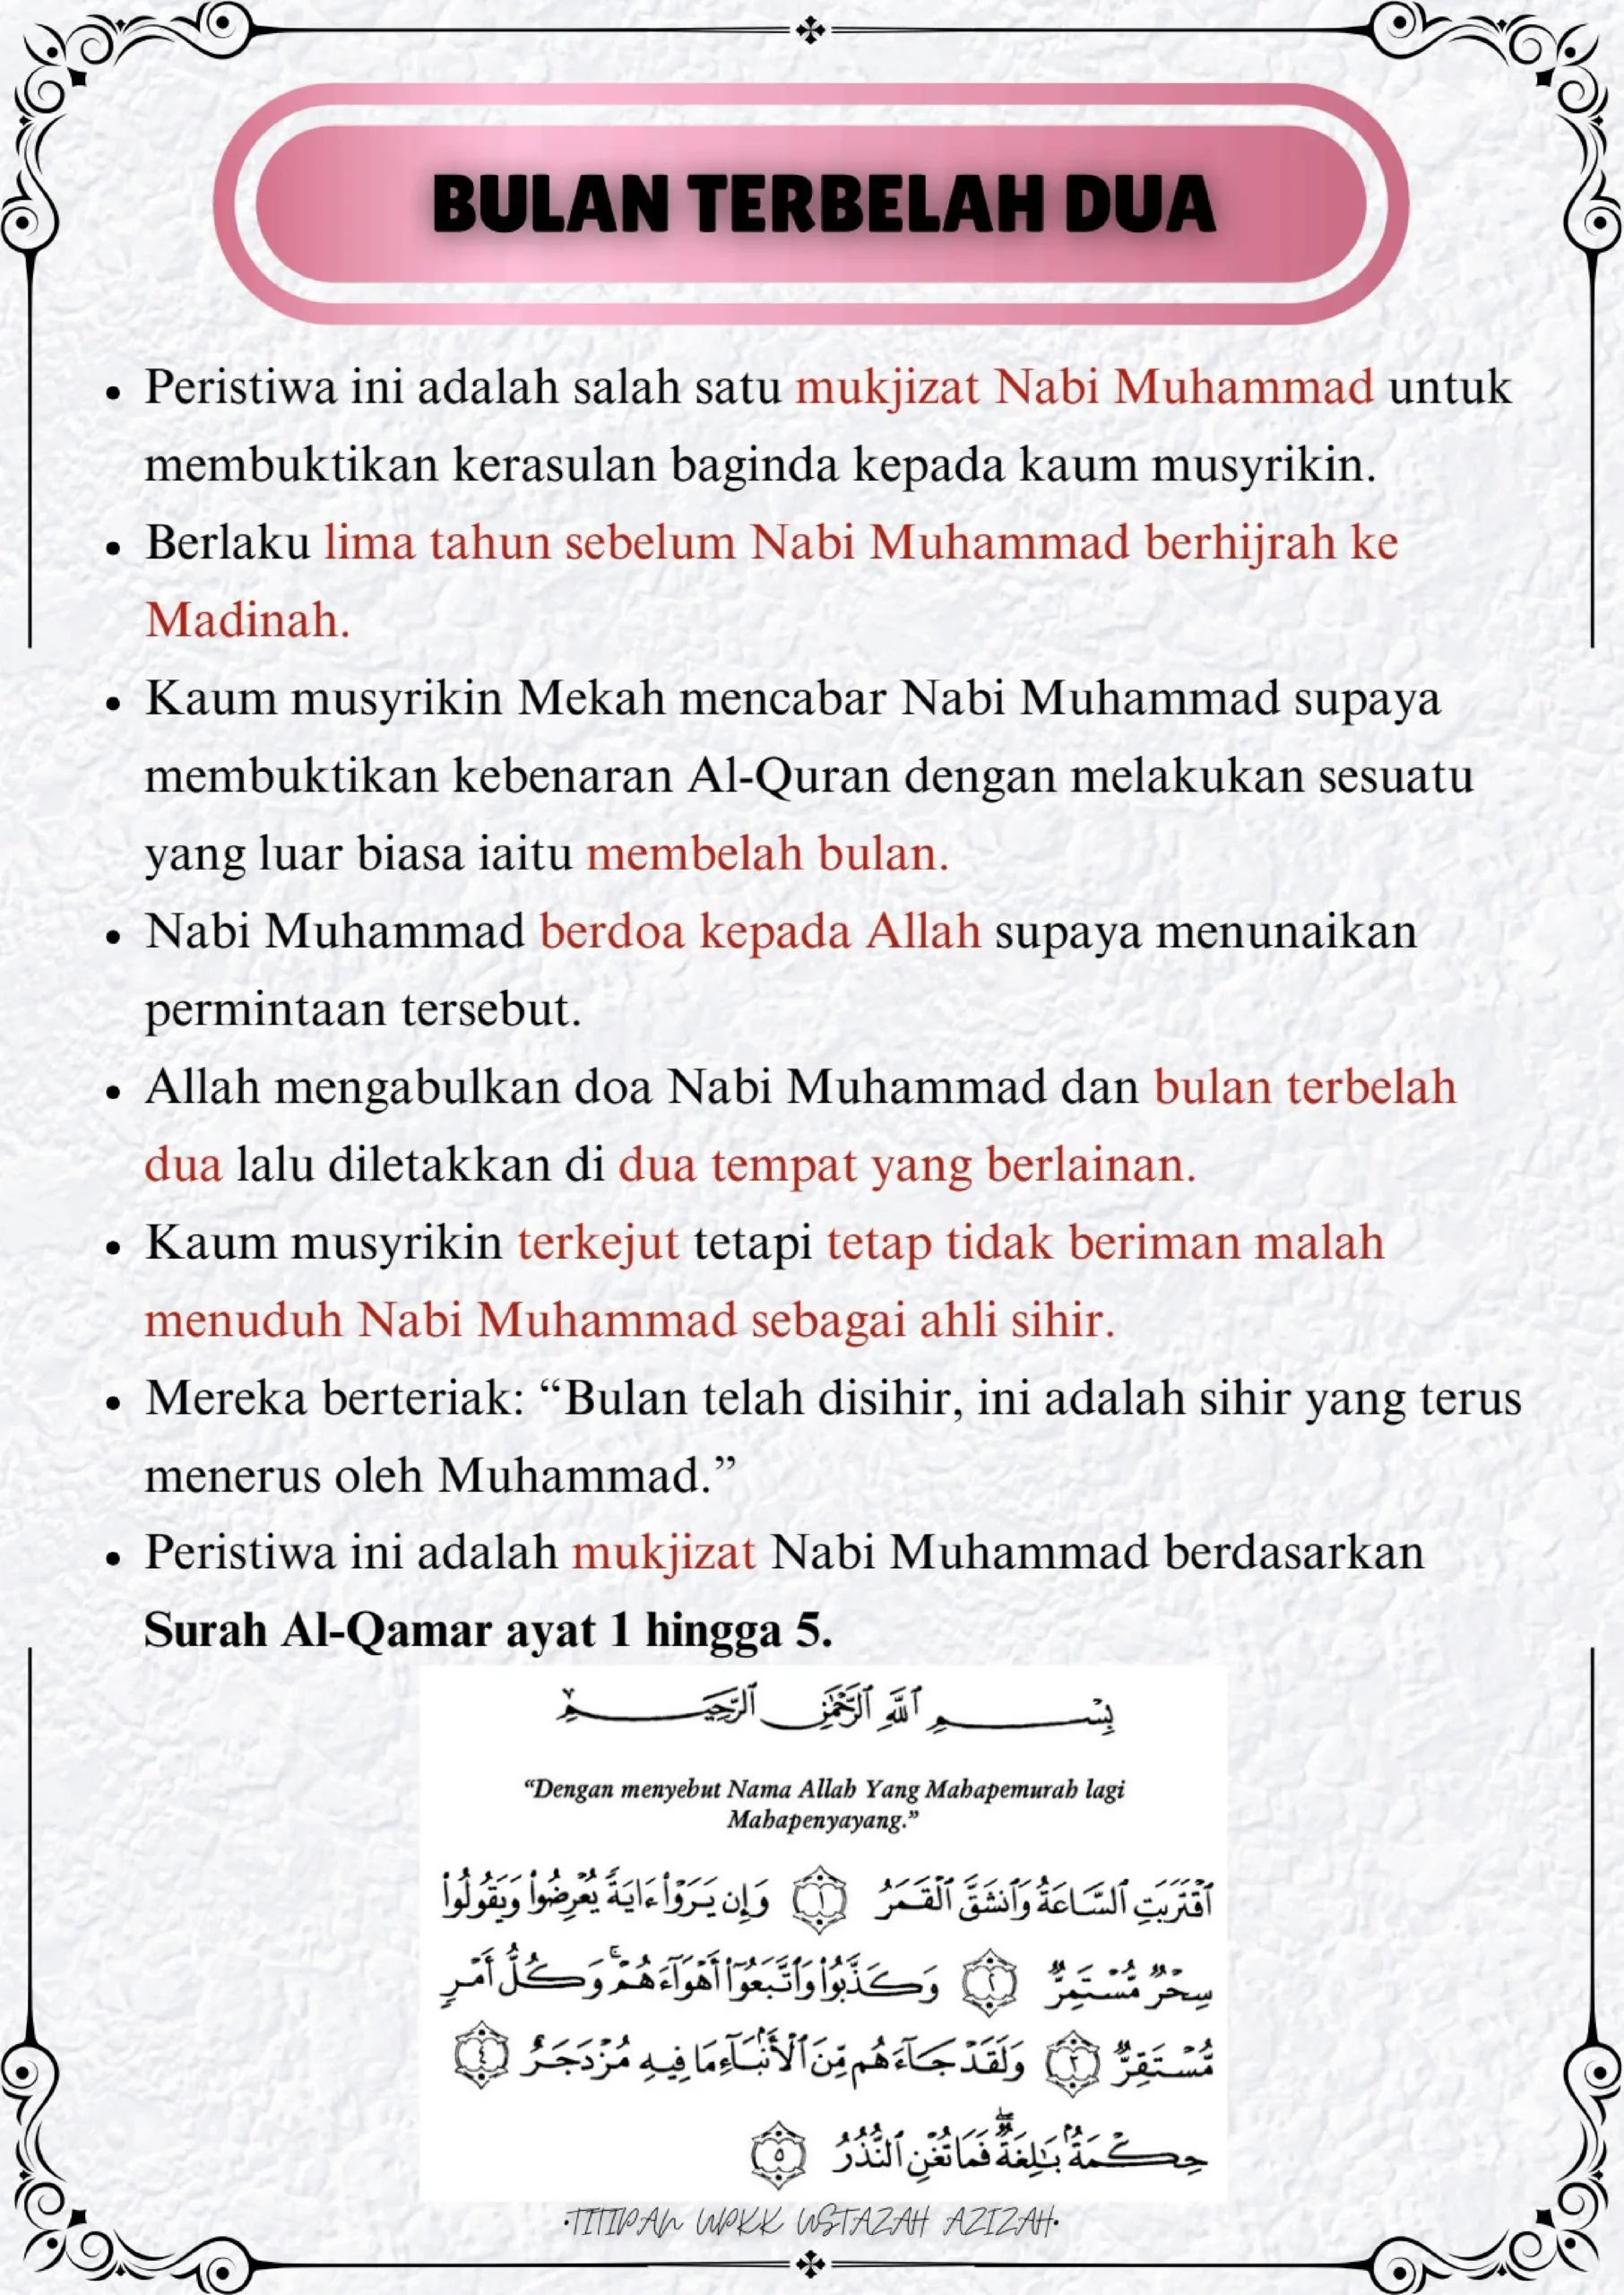 BULAN TERBELAH DUA
• Peristiwa ini adalah salah satu mukjizat Nabi Muhammad untuk
membuktikan kerasulan baginda kepada kaum musyrikin.
• Berlaku lima tahun sebelum Nabi Muhammad berhijrah ke
Madinah.
• Kaum musyrikin Mekah mencabar Nabi Muhammad supaya
membuktikan kebenaran Al-Quran dengan melakukan sesuatu
yang luar biasa iaitu membelah bulan.
• Nabi Muhammad berdoa kepada Allah supaya menunaikan
permintaan tersebut.
• Allah mengabulkan doa Nabi Muhammad dan bulan terbelah
dua lalu diletakkan di dua tempat yang berlainan.
• Kaum musyrikin terkejut tetapi tetap tidak beriman malah
menuduh Nabi Muhammad sebagai ahli sihir.
• Mereka berteriak: “Bulan telah disihir, ini adalah sihir yang terus
menerus oleh Muhammad.”
• Peristiwa ini adalah mukjizat Nabi Muhammad berdasarkan
Surah Al-Qamar ayat 1 hingga 5.
بِسْمِ ٱللَّهِ ٱلرَّحْمَٰنِ ٱلرَّحِيمِ
“Dengan menyebut Nama Allah Yang Mahapemurah lagi
Mahapenyayang.”
ٱقْتَرَبَتِ ٱلسَّاعَةُ وَٱنشَقَّ ٱلْقَمَرُ ١ وَإِن يَرَوْا۟ ءَايَةً يُعْرِضُوا۟ وَيَقُولُوا۟
سِحْرٌ مُّسْتَمِرٌّ ٢ وَكَذَّبُوا۟ وَٱتَّبَعُوٓا۟ أَهْوَآءَهُمْ ۚ وَكُلُّ أَمْرٍ
مُّسْتَقِرٌّ ٣ وَلَقَدْ جَآءَهُم مِّنَ ٱلْأَنۢبَآءِ مَا فِيهِ مُزْدَجَرٌ ٤
حِكْمَةٌۢ بَٰلِغَةٌ ۖ فَمَا تُغْنِ ٱلنُّذُرُ ٥
·TITIPAN UPKK USTAZAH AZIZAH·